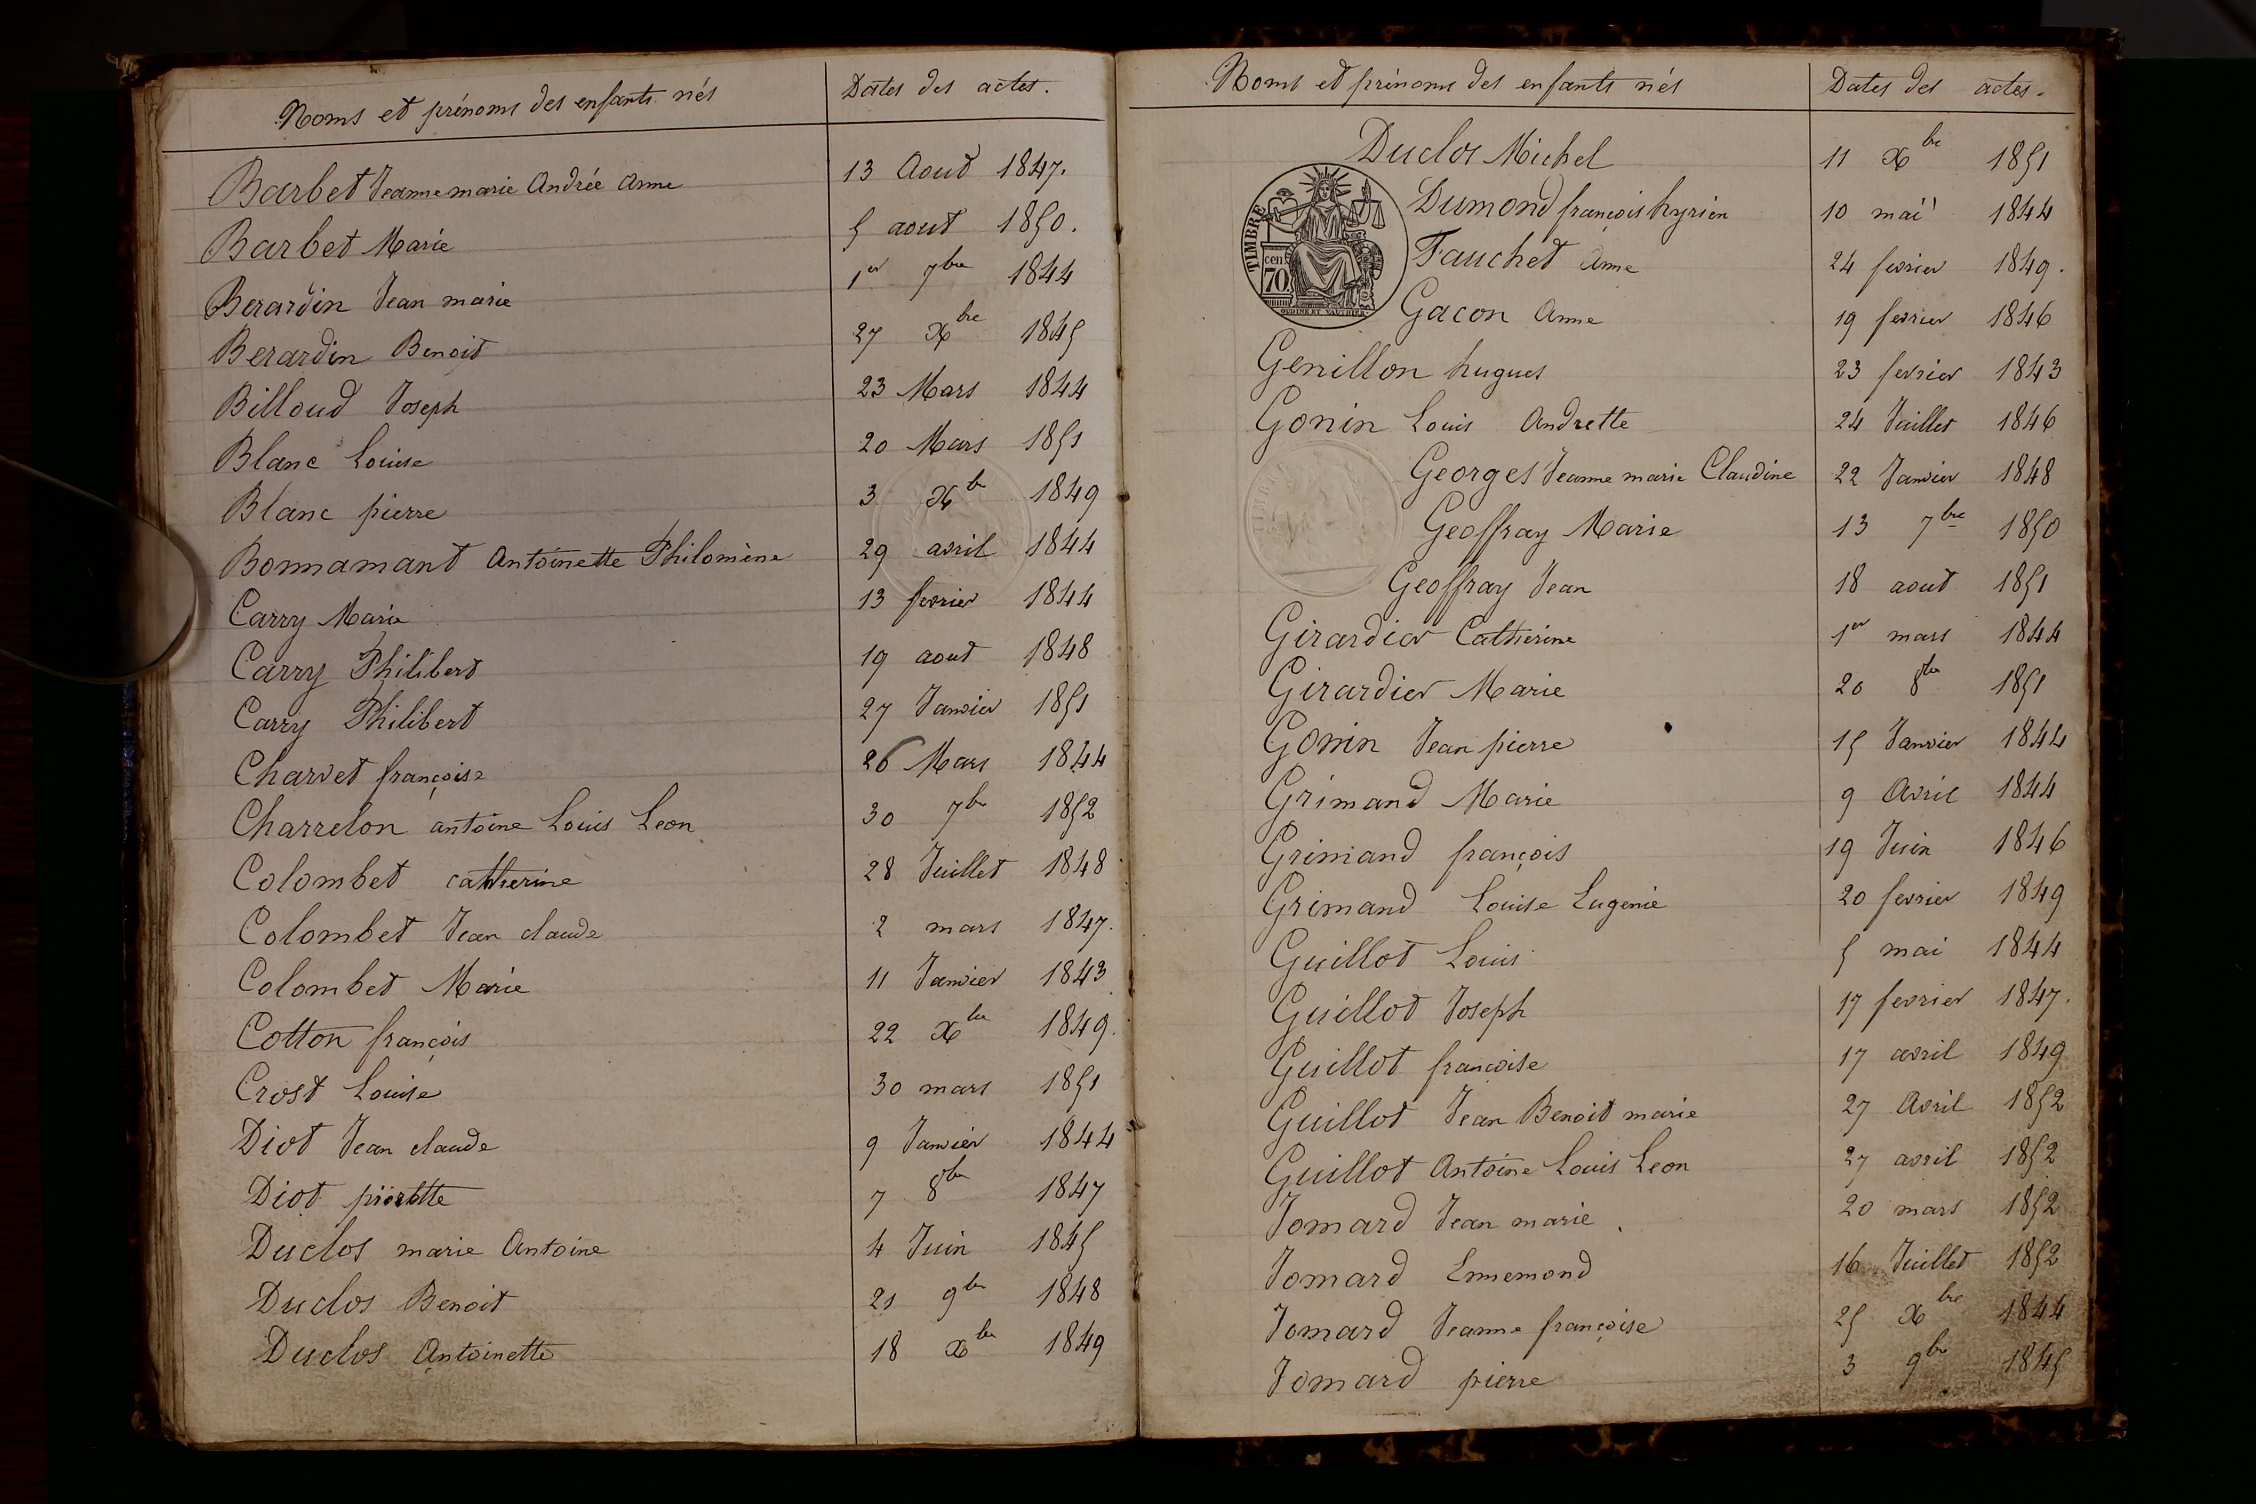 Noms et prénoms des enfants nés Dates des actes.
Barbet Jeanne marie Andrée Anne 13 Aout 1847.
Barbet Marie 5 aout 1850.
Berardin Jean marie 1er 7bre 1844
Berardin Benoit 27 Xbre 1845
Billoud Joseph 23 Mars 1844
Blanc Louise 20 Mars 1851
Blanc pierre 3 Xbr 1849
Bonnamant Antoinette Philomène 29 avril 1844
Carry Marie 13 fevrier 1844
Carry Philibert 19 aout 1848
Carry Philibert 27 Janvier 1851
Charvet françoise 26 Mars 1844
Charrelon antoine Louis Leon 30 7br 1852
Colombet catherine 28 Juillet 1848
Colombet Jean claude 2 mars 1847.
Colombet Marie 11 Janvier 1843
Cotton françois 22 Xbre 1849.
Crost Louise 30 mars 1851
Diot Jean claude 9 Janvier 1844
Diot pierrette 7 8bre 1847
Duclos marie Antoine 4 Juin 1845
Duclos Benoit 21 9br 1848
Duclos Antoinette 18 Xbre 1849
Noms et prénoms des enfants nés Dates des actes.
Duclos Michel 11 Xbre 1851
Dumond françois hyrien 10 mai 1844
Fauchet Anne 24 fevrier 1849.
Gacon Anne 19 fevrier 1846
TIMBRE
cen.
70.
OUDINE ET VAUTHIER
Genillon hugues 23 fevrier 1843
Gonin Louis Andrette 24 Juillet 1846
Georges Jeanne marie Claudine 22 Janvier 1848
Geoffray Marie 13 7bre 1850
Geoffray Jean 18 aout 1851
Girardier Catherine 1er mars 1844
Girardier Marie 20 8bre 1851
Gonin Jean pierre 15 Janvier 1844
Grimand Marie 9 Avril 1844
Grimand françois 19 Juin 1846
Grimand Louise Eugenie 20 fevrier 1849
Guillot Louis 5 mai 1844
Guillot Joseph 17 fevrier 1847.
Guillot françoise 17 avril 1849
Guillot Jean Benoit marie 27 Avril 1852
Guillot Antoine Louis Leon 27 avril 1852
Jomard Jean marie . 20 mars 1852
Jomard Ennemond 16 Juillet 1852
Jomard Jeanne françoise 25 Xbre 1844
Jomard pierre 3 9br 1845